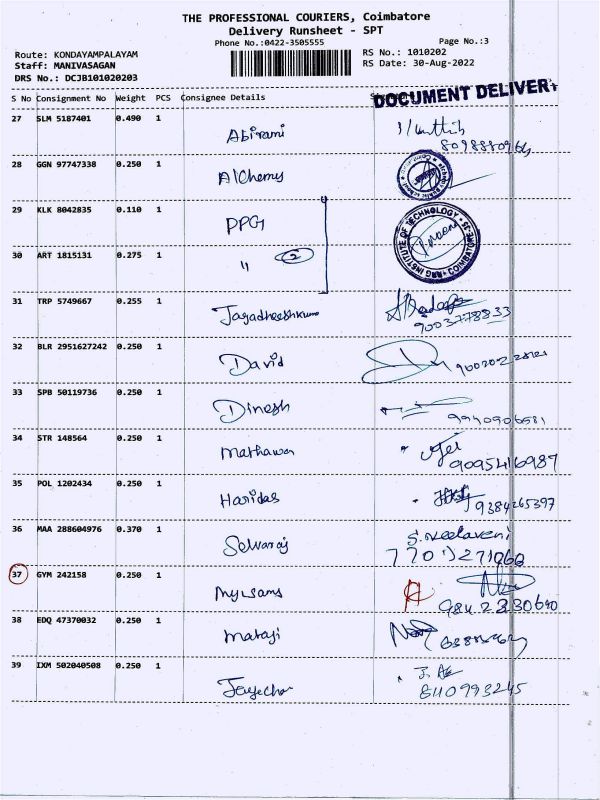 THE PROFESSIONAL COURIERS, Coimbatore
Delivery Runsheet - SPT
Phone No.:0422-3505555
Page No.:3
Route: KONDAYAMPALAYAM
RS No.: 1010202
Staff: MANIVASAGAN
RS Date: 30-Aug-2022
DRS No.: DCJB101020203
DOCUMENT DELIVERY
S No Consignment No Weight PCS Consignee Details
27 SLM 5187401 0.490 1 Abirami
28 GGN 97747338 0.250 1 Alchemy
29 KLK 8042835 0.110 1 PPG
INSTITUTE OF TECHNOLOGY
30 ART 1815131 0.275 1 " 2
31 TRP 5749667 0.255 1 Jagadheeshkumar
9003778833
32 BLR 2951627242 0.250 1 David
33 SPB 50119736 0.250 1 Dinesh
9940906581
34 STR 148564 0.250 1 Mathawan
9095416987
35 POL 1202434 0.250 1 Haridas
9384265397
36 MAA 288604976 0.370 1 Selvaraj S. Neelaveni
37 GYM 242158 0.250 1 Mywsams
9842230640
38 EDQ 47370032 0.250 1 Mataji
39 IXM 502040508 0.250 1
8110993245